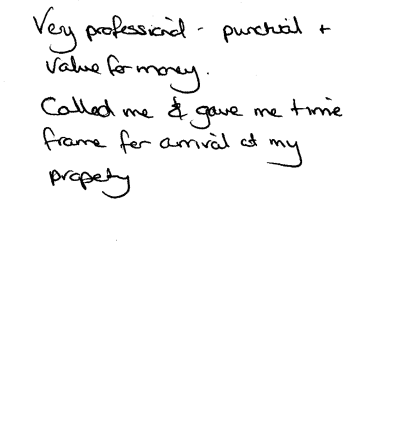 Very professional - punctual +
value for money.
Called me & gave me time
frame for arrival at my
property